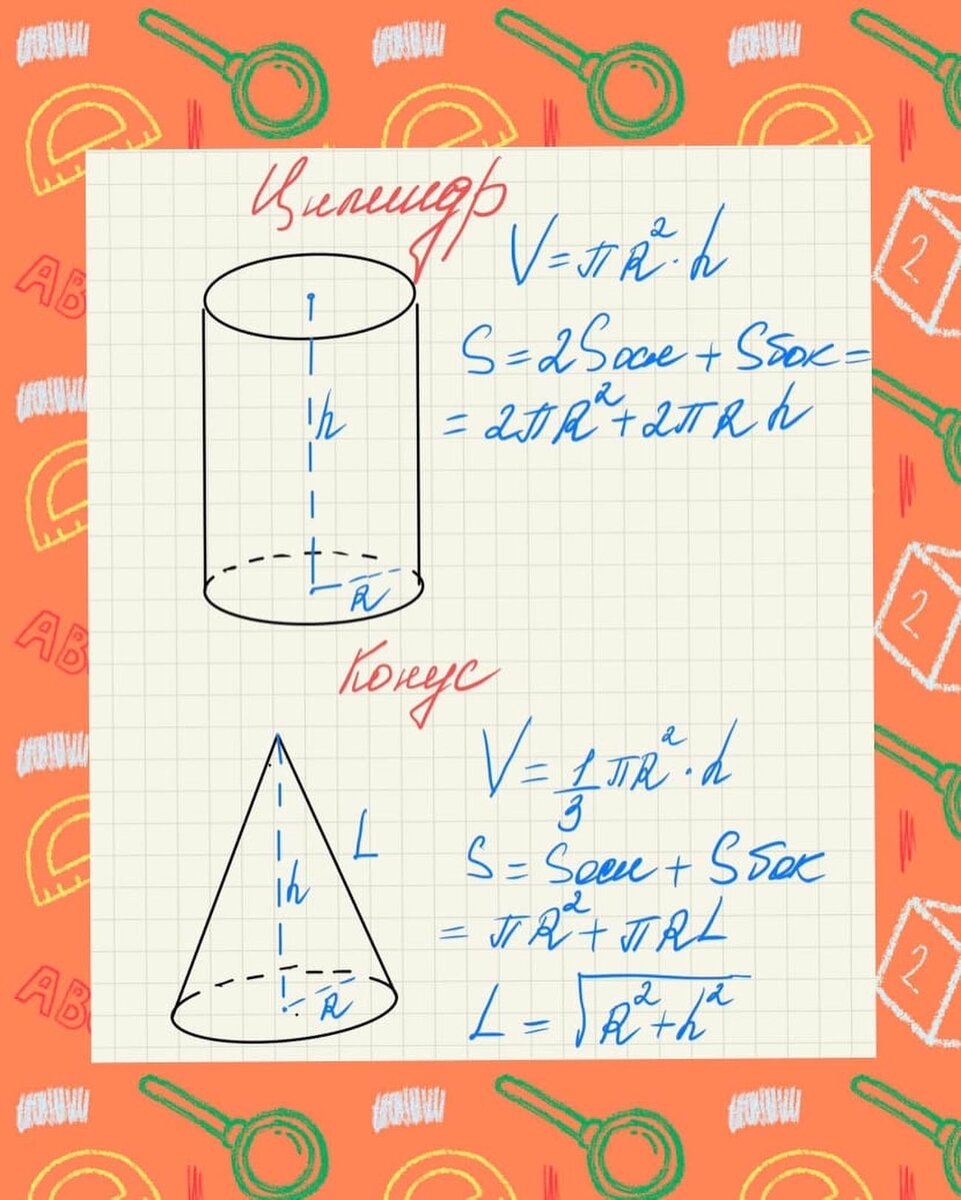 Цилиндр
V = πR² · h
S = 2Sосн + Sбок =
= 2πR² + 2πRh
h
R
Конус
V = 1/3 πR² · h
S = Sосн + Sбок
= πR² + πRL
L = √(R² + h²)
L
h
R
AB
AB
AB
2
2
2